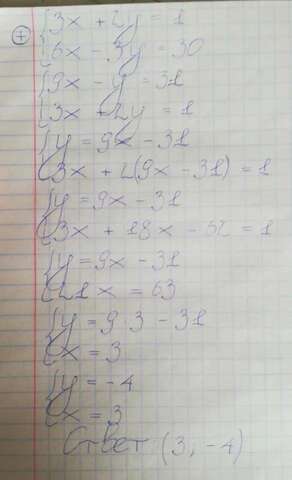 {3x + 2y = 1
+ {6x - 3y = 30
{9x - y = 31
{3x + 2y = 1
{y = 9x - 31
{3x + 2(9x - 31) = 1
{y = 9x - 31
{3x + 18x - 62 = 1
{y = 9x - 31
{21x = 63
{y = 9·3 - 31
{x = 3
{y = -4
{x = 3
Ответ (3, -4)